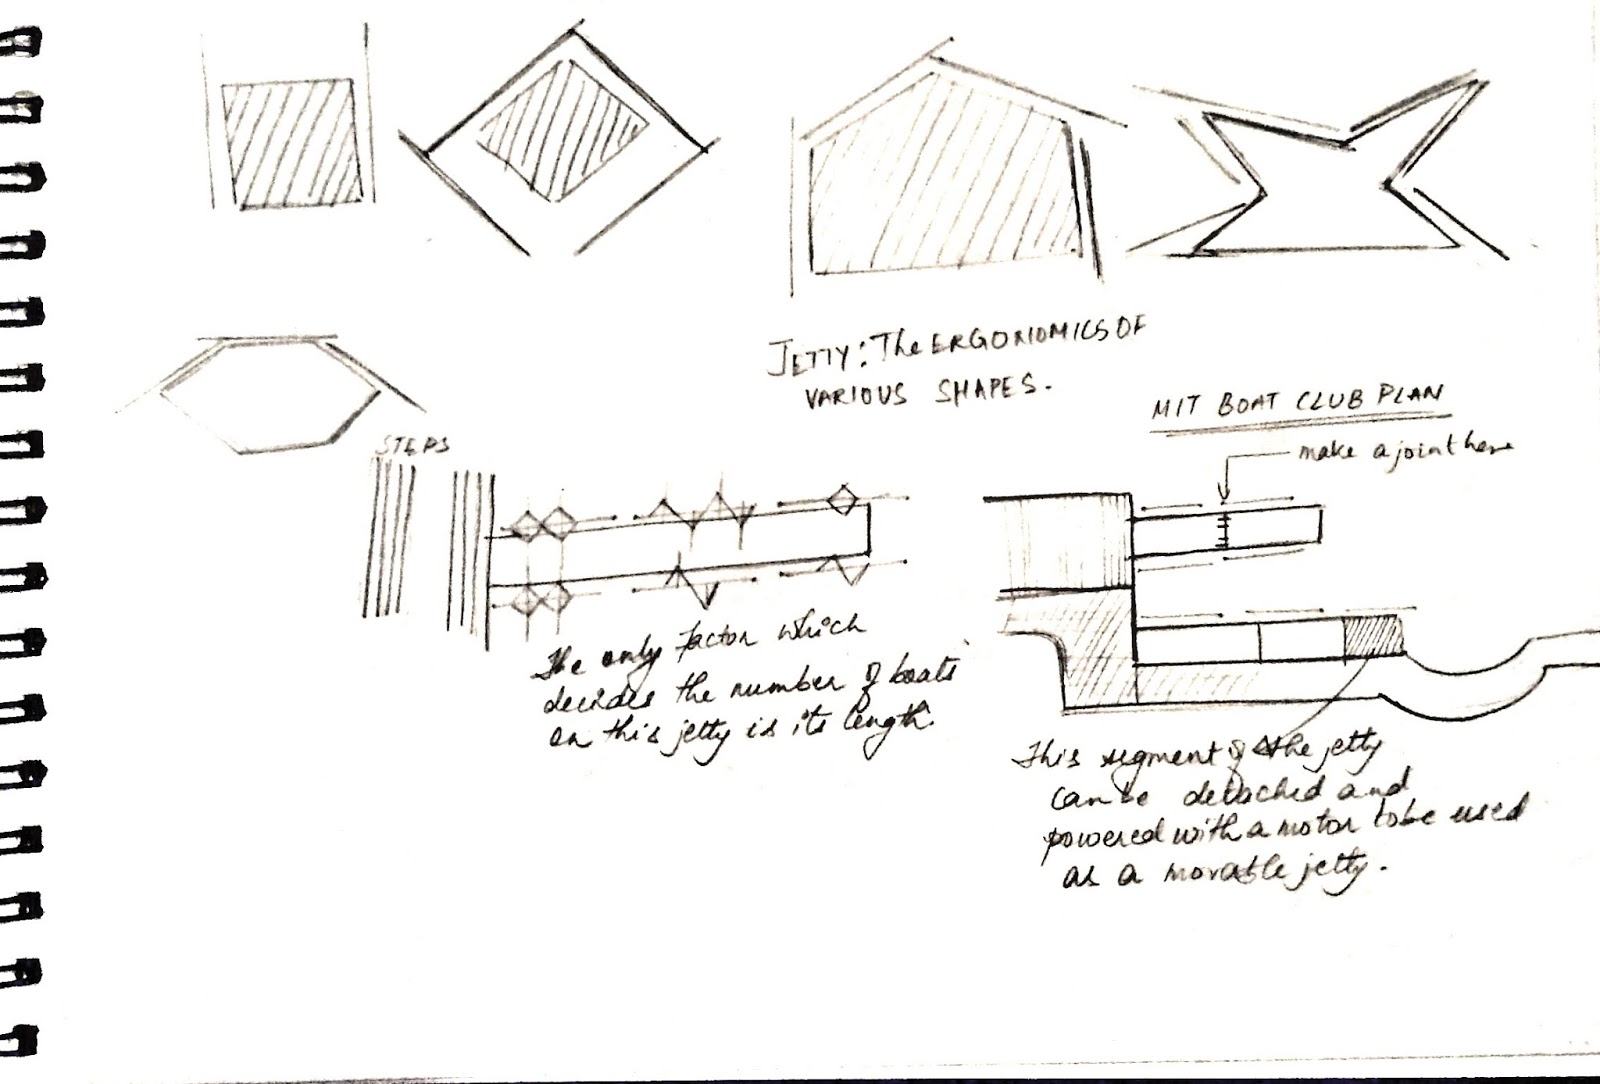 JETTY: The ERGONIOMICS OF
VARIOUS SHAPES.
MIT BOAT CLUB PLAN
make a joint here
STEPS
The only factor which
decides the number of boats
on this jetty is its length.
This segment of the jetty
can be detached and
powered with a motor to be used
as a movable jetty.